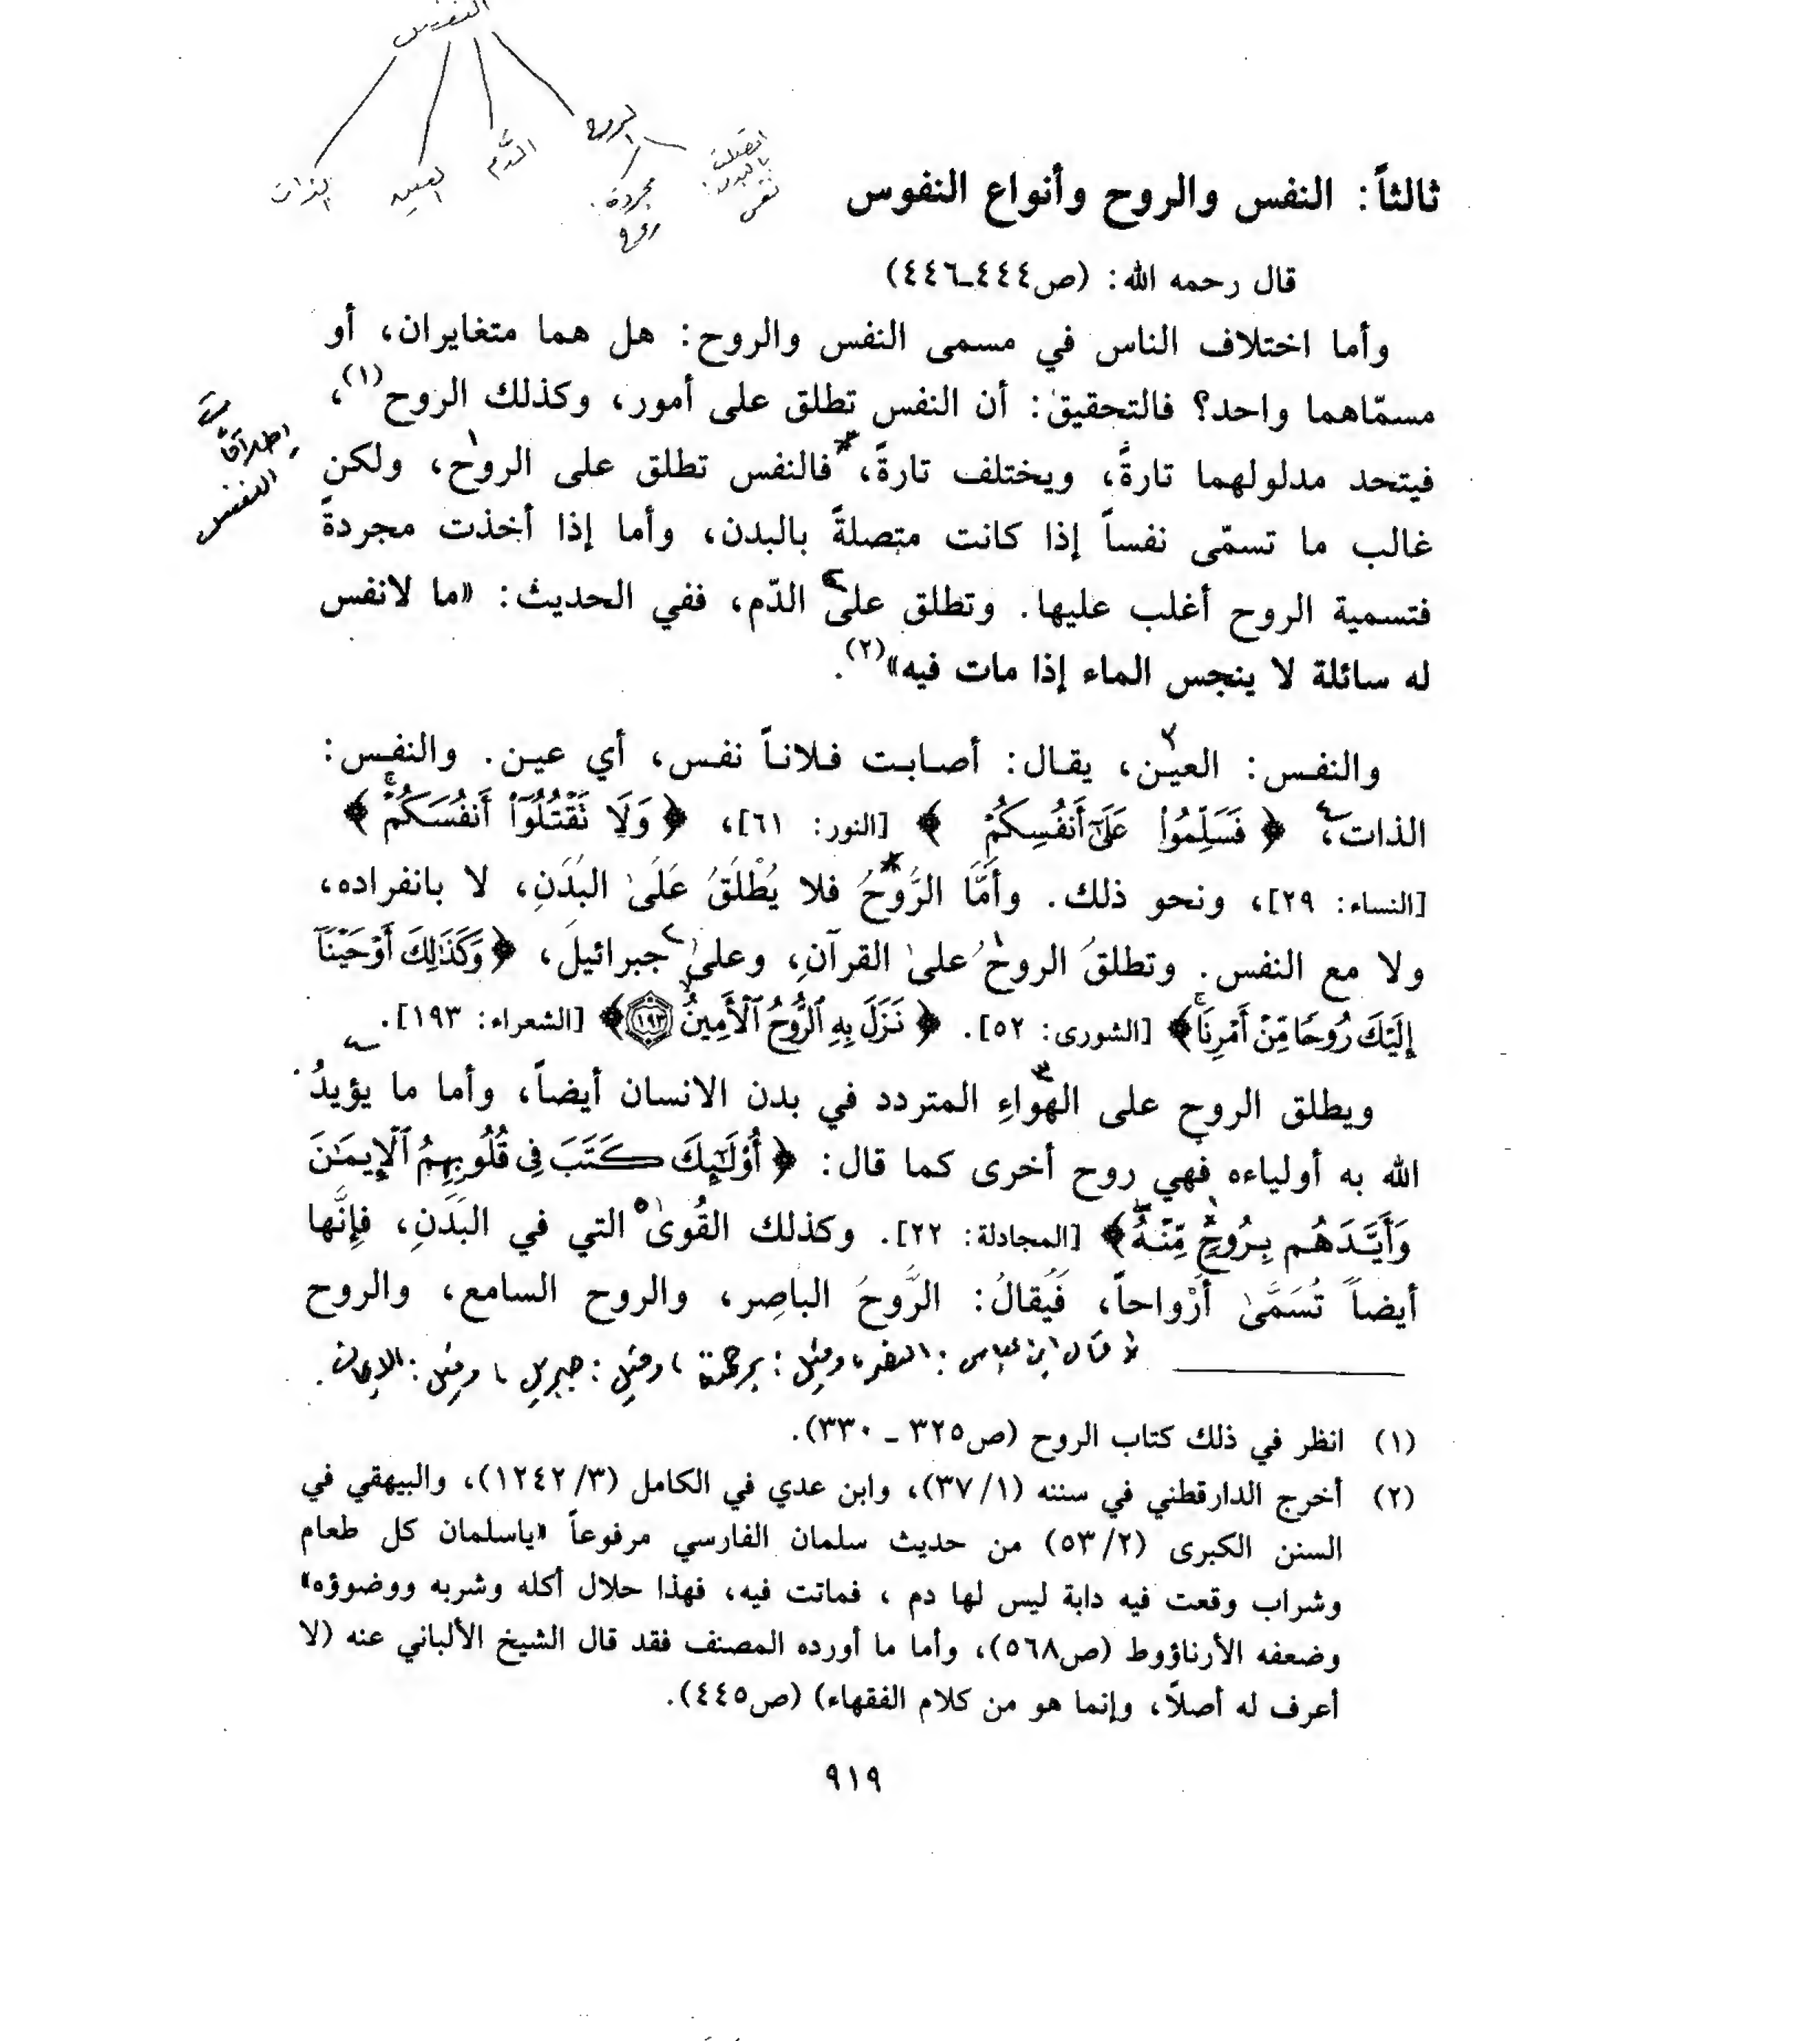 النفس
الروح
الدَّم
العين
الذات
اتصلت
بالبدن:
نفس
مجردة:
روح
ثالثاً: النفس والروح وأنواع النفوس
قال رحمه الله: (ص٤٤٤ـ٤٤٦)
وأما اختلاف الناس في مسمى النفس والروح: هل هما متغايران، أو
مسمّاهما واحد؟ فالتحقيق: أن النفس تطلق على أمور، وكذلك الروح(١)،
فيتحد مدلولهما تارةً، ويختلف تارةً، فالنفس تطلق على الروح، ولكن
غالب ما تسمّى نفساً إذا كانت متصلةً بالبدن، وأما إذا أخذت مجردةً
فتسمية الروح أغلب عليها. وتطلق على الدّم، ففي الحديث: «ما لانفس
له سائلة لا ينجس الماء إذا مات فيه»(٢).
إطلاقات
النفس
والنفس: العين، يقال: أصابت فلاناً نفس، أي عين. والنفس:
الذات، ﴿ فَسَلِّمُوا۟ عَلَىٰٓ أَنفُسِكُمْ ﴾ [النور: ٦١]، ﴿ وَلَا تَقْتُلُوٓا۟ أَنفُسَكُمْ ۚ ﴾
[النساء: ٢٩]، ونحو ذلك. وأَمَّا الرُّوحُ فلا يُطْلَقُ عَلَىٰ البَدَنِ، لا بانفراده،
ولا مع النفس. وتطلقُ الروحُ علىٰ القرآنِ، وعلىٰ جبرائيلَ، ﴿ وَكَذَٰلِكَ أَوْحَيْنَآ
إِلَيْكَ رُوحًا مِّنْ أَمْرِنَا ۚ ﴾ [الشورى: ٥٢]. ﴿ نَزَلَ بِهِ ٱلرُّوحُ ٱلْأَمِينُ ١٩٣ ﴾ [الشعراء: ١٩٣].
ويطلق الروح على الهواءِ المتردد في بدن الانسان أيضاً، وأما ما يؤيدُ
الله به أولياءه فهي روح أخرى كما قال: ﴿ أُو۟لَٰٓئِكَ كَتَبَ فِى قُلُوبِهِمُ ٱلْإِيمَٰنَ
وَأَيَّدَهُم بِرُوحٍ مِّنْهُ ۖ ﴾ [المجادلة: ٢٢]. وكذلك القُوىٰ التي في البَدَنِ، فإِنَّها
أيضاً تُسَمَّىٰ أَرْواحاً، فَيُقالُ: الرَّوحُ الباصِر، والروح السامع، والروح
قال ابن عباس: النصر، وقيل: برحمة، وقيل: جبريل، وقيل: الإيمان.
(١) انظر في ذلك كتاب الروح (ص٣٢٥ ـ ٣٣٠).
(٢) أخرج الدارقطني في سننه (٣٧/١)، وابن عدي في الكامل (١٢٤٢/٣)، والبيهقي في
السنن الكبرى (٥٣/٢) من حديث سلمان الفارسي مرفوعاً «ياسلمان كل طعام
وشراب وقعت فيه دابة ليس لها دم ، فماتت فيه، فهذا حلال أكله وشربه ووضوؤه»
وضعفه الأرناؤوط (ص٥٦٨)، وأما ما أورده المصنف فقد قال الشيخ الألباني عنه (لا
أعرف له أصلاً، وإنما هو من كلام الفقهاء) (ص٤٤٥).
٩١٩